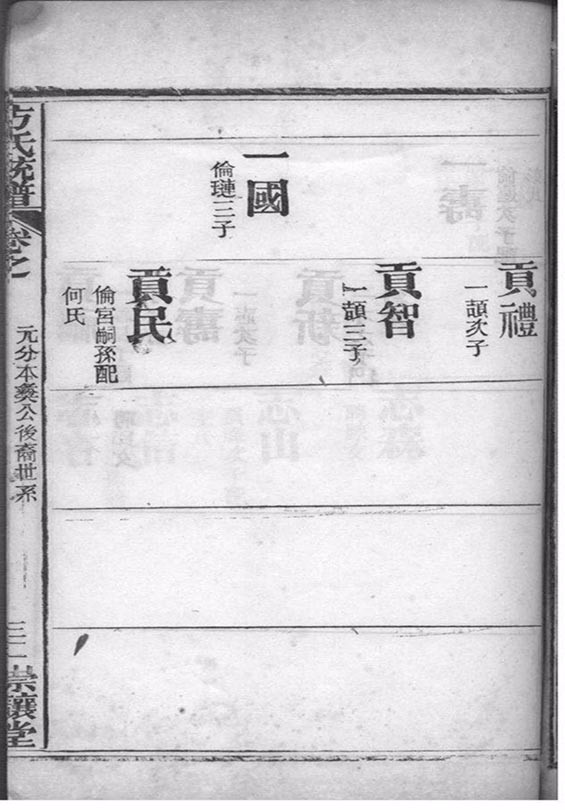 貢禮
一頡次子
貢智
一頡三子
一國
倫璉三子
貢民
倫宮嗣孫配
何氏
方氏統譜
卷之
元分本葵公後裔世系
三二
崇讓堂